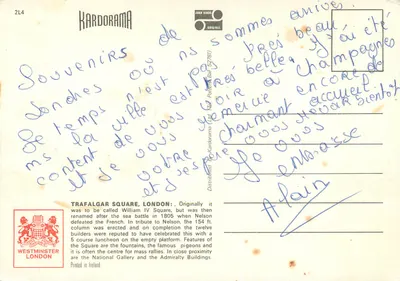 2L4
KARDORAMA
Souvenirs de
Londres où ns sommes arrivés.
Le temps n'est pas très beau
ms la ville est très belle. J'ai été
content de vous voir à Champagnes
et de vous remercie encore de
votre charmant accueil
et j'espère vous revoir bientôt
Je vous
embrasse
Alain
TRAFALGAR SQUARE, LONDON: . Originally it
was to be called William IV Square, but was then
renamed after the sea battle in 1805 when Nelson
defeated the French. In tribute to Nelson. The 154 ft.
column was erected and on completion the twelve
builders were reputed to have celebrated this with a
5 course luncheon on the empty platform. Features of
the Square are the fountains, the famous pigeons and
it is often the centre for mass rallies. In close proximity
are the National Gallery and the Admiralty Buildings.
Printed in Ireland.
WESTMINSTER
LONDON